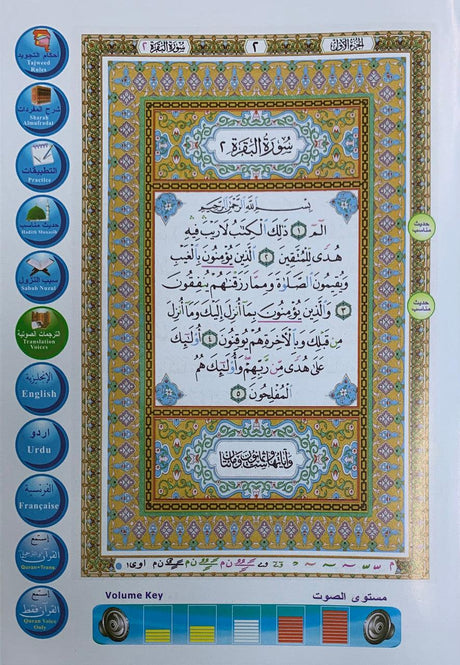 سُورَةُ البَقَرَة ٢
٢
الجُزءُ الأوّل
أحكام التجويد
Tajweed
Rules
شرح المفردات
Sharah
Almufradat
التطبيقات
Practice
حديث مناسب
Hadith Munasib
سبب النزول
Sabab Nuzul
الترجمات الصوتية
Translation
Voices
الإنجليزية
English
اردو
Urdu
الفرنسية
Française
إستمع
Quran+Trans.
إستمع
القرآن فقط
Quran Voice
Only
سُورَةُ البَقَرَة ٢
بِسْمِ اللَّهِ الرَّحْمَٰنِ الرَّحِيمِ
الٓمٓ ١ ذَٰلِكَ ٱلْكِتَٰبُ لَا رَيْبَ فِيهِ
هُدًى لِّلْمُتَّقِينَ ٢ ٱلَّذِينَ يُؤْمِنُونَ بِٱلْغَيْبِ
وَيُقِيمُونَ ٱلصَّلَوٰةَ وَمِمَّا رَزَقْنَٰهُمْ يُنفِقُونَ
٣ وَٱلَّذِينَ يُؤْمِنُونَ بِمَآ أُنزِلَ إِلَيْكَ وَمَآ أُنزِلَ
مِن قَبْلِكَ وَبِٱلْأَخِرَةِ هُمْ يُوقِنُونَ ٤ أُو۟لَٰٓئِكَ
عَلَىٰ هُدًى مِّن رَّبِّهِمْ وَأُو۟لَٰٓئِكَ هُمُ
ٱلْمُفْلِحُونَ ٥
حديث
مناسب
حديث
مناسب
Volume Key
مستوى الصوت